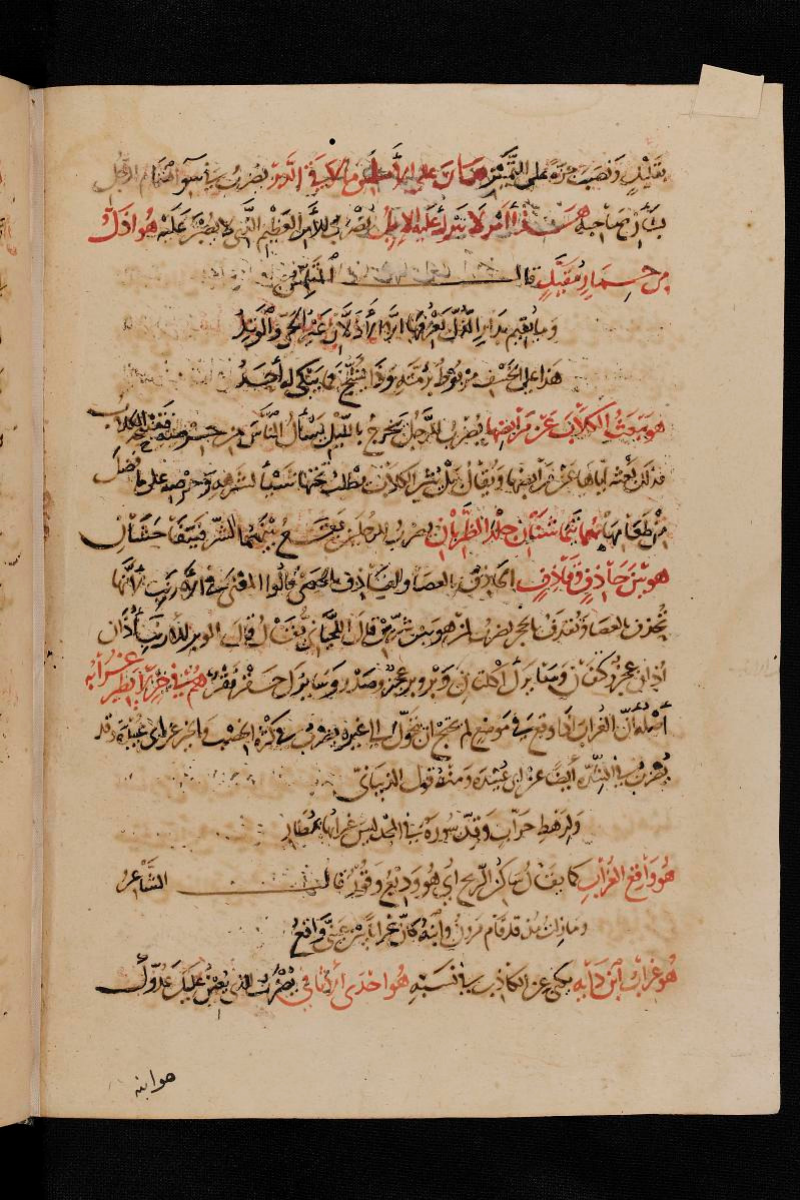 بقليل ونصب مرة على التمييز هان على الأملس ما لاقى الدبر يضرب في سوء اهتمام الرجل
بشأن صاحبه هذا أمر لا تبرك عليه الإبل يضرب للأمر العظيم الذي لا يصبر عليه هو أذل
من حمار مقيد قال المتلمس
وما يقيم بدار الذل يعرفها إلا الأذلان عير الحي والوتد
هذا على الخسف مربوط برمته وذا يشج فما يبكي له أحد
هو يبعث الكلاب عن مرابضها يضرب للرجل يخرج بالليل يسأل الناس من حرصه فتنبحه الكلاب
فذلك بعثه إياها عن مرابضها ويقال بل يثير الكلاب يطلب تحتها شيئا لشرهه وحرصه على ما فضل
من طعامها هما يتماشنان جلد الظربان يضرب للرجلين يقع بينهما الشر فيتفاحشان
هو بين حاذف وقاذف الحاذف بالعصا والقاذف بالحصى قالوا المعنى في الأرنب لأنها
تحذف بالعصا وتقذف بالحجر يضرب لمن هو بين شرين قال اللحياني يقال قال الوبر للأرنب أذان
أذان عجز وكتفان وسائرك أكلتان وبر وبر عجز وصدر وسائرك حقر نقر هم في خير لا يطير غرابه
أصله أن الغراب إذا وقع في موضع لم يحتج أن يتحول إلى غيره يضرب في كثرة الخصب والخير عن أبي عبيدة وقد
يضرب في الشدة أيضا عن أبي عبيدة ومنه قول الذبياني
ولرهط حراب وقد سورة في المجد ليس غرابها بمطار
هو واقع الغراب كما يقال ساكن الريح أي هو وديع وقور قال الشاعر
وما زلت مذ قام مروان وابنه كأن غرابا بين عيني واقع
هو غراب ابن داية يكنى عن الكاذب في نسبته هو إحدى الأثافي يضرب الذي يعين عليك عدوك
هو ابنه